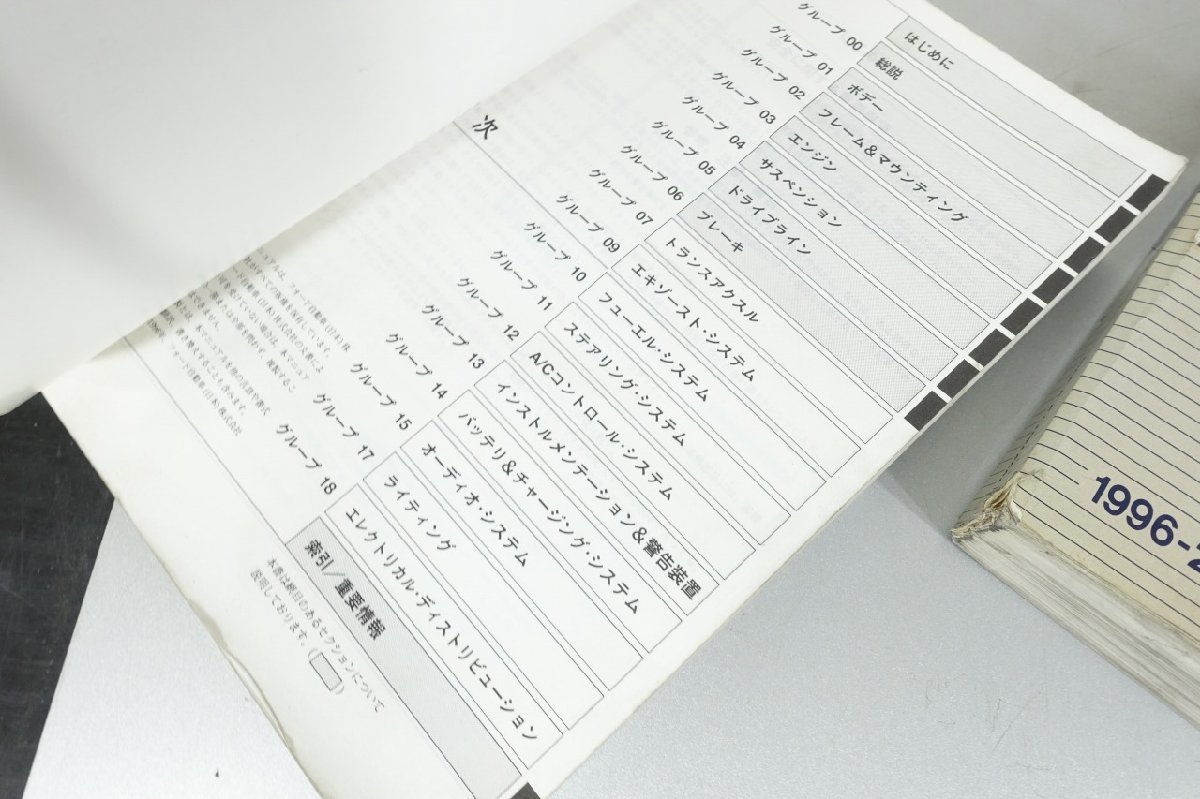 次
はじめに
グループ 00 総説
グループ 01 ボデー
グループ 02 フレーム&マウンティング
グループ 03 エンジン
グループ 04 サスペンション
グループ 05 ドライブライン
グループ 06 ブレーキ
グループ 07 トランスアクスル
グループ 09 エキゾースト・システム
グループ 10 フューエル・システム
グループ 11 ステアリング・システム
グループ 12 A/Cコントロール・システム
グループ 13 インストルメンテーション&警告装置
グループ 14 バッテリ&チャージング・システム
グループ 15 オーディオ・システム
グループ 17 ライティング
グループ 18 エレクトリカル・ディストリビューション
索引/重要情報
本書は網目のあるセクションについて
説明しております。( )
フォード自動車(日本)株式会社
1996-2